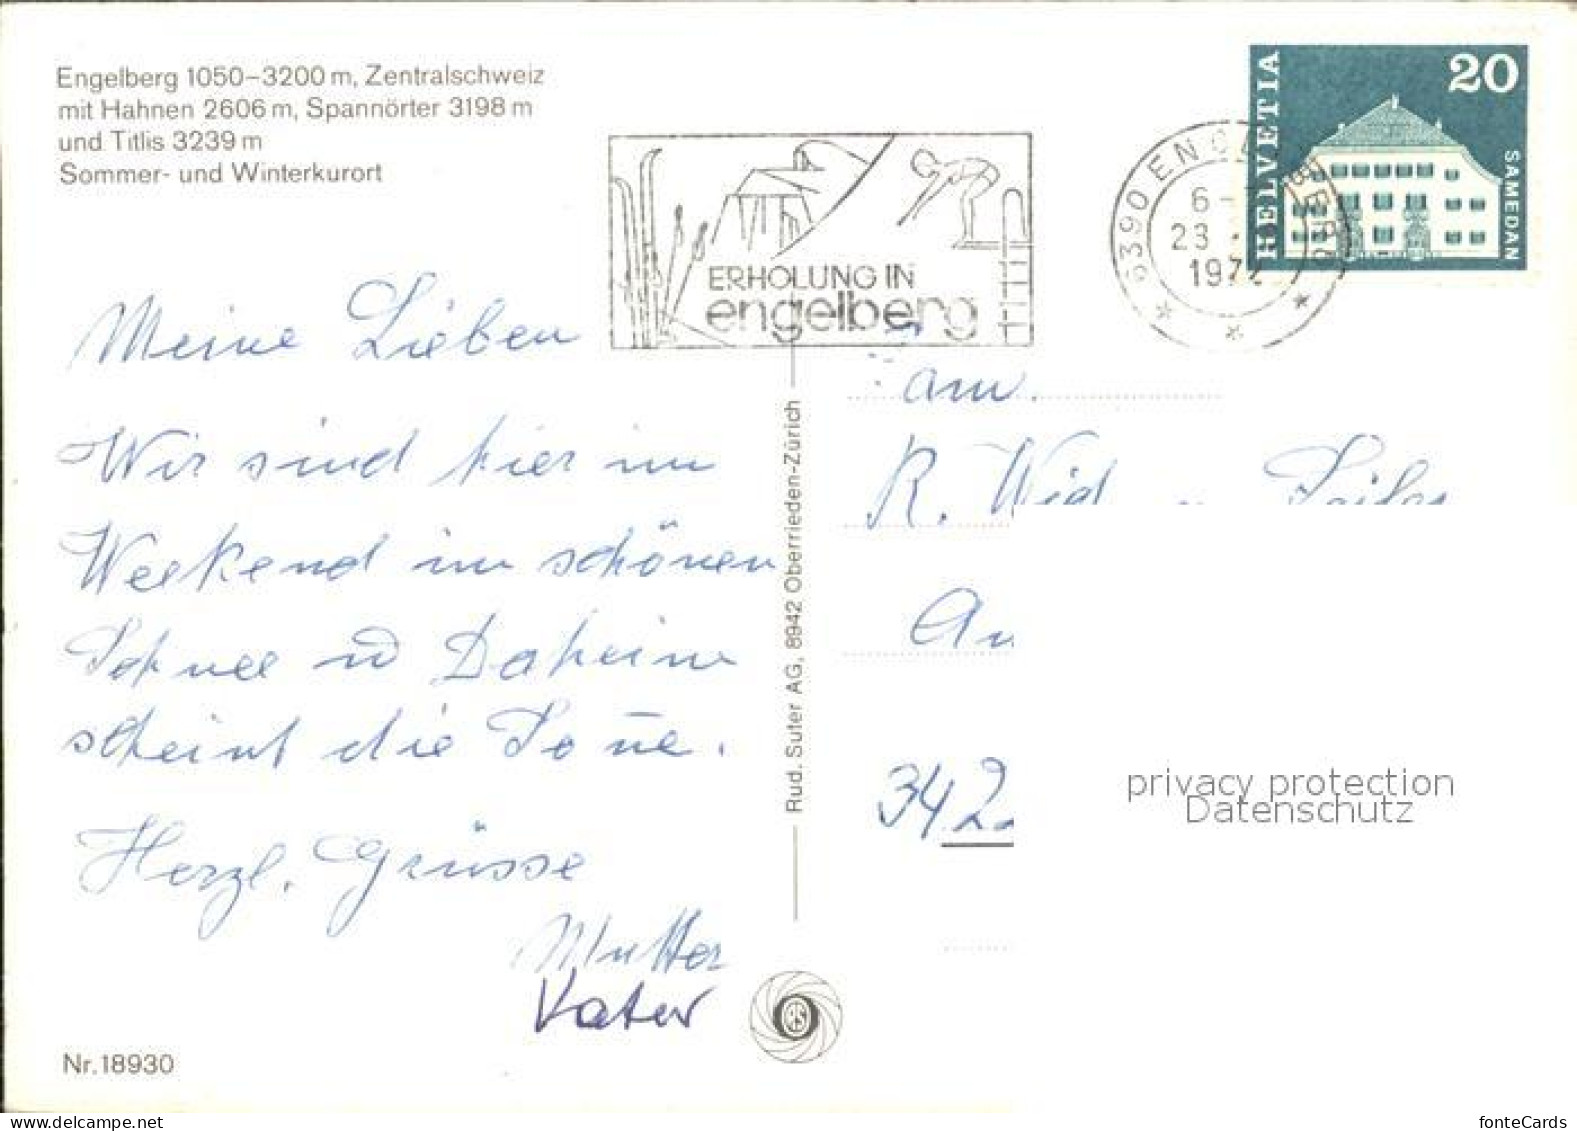 Engelberg 1050–3200 m, Zentralschweiz
mit Hahnen 2606 m, Spannörter 3198 m
und Titlis 3239 m
Sommer- und Winterkurort
HELVETIA
20
SAMEDAN
6390 ENGELBERG
6-
23.
197
ERHOLUNG IN
engelberg
Meine Lieben
Wir sind hier im
Weekend im schönen
Schnee u Daheim
scheint die Soñe.
Herzl. Grüsse
Mutter
Vater
Rud. Suter AG, 8942 Oberrieden-Zürich
RS
R. Wid
342
privacy protection
Datenschutz
Nr. 18930
Delcampe.net
fonteCards